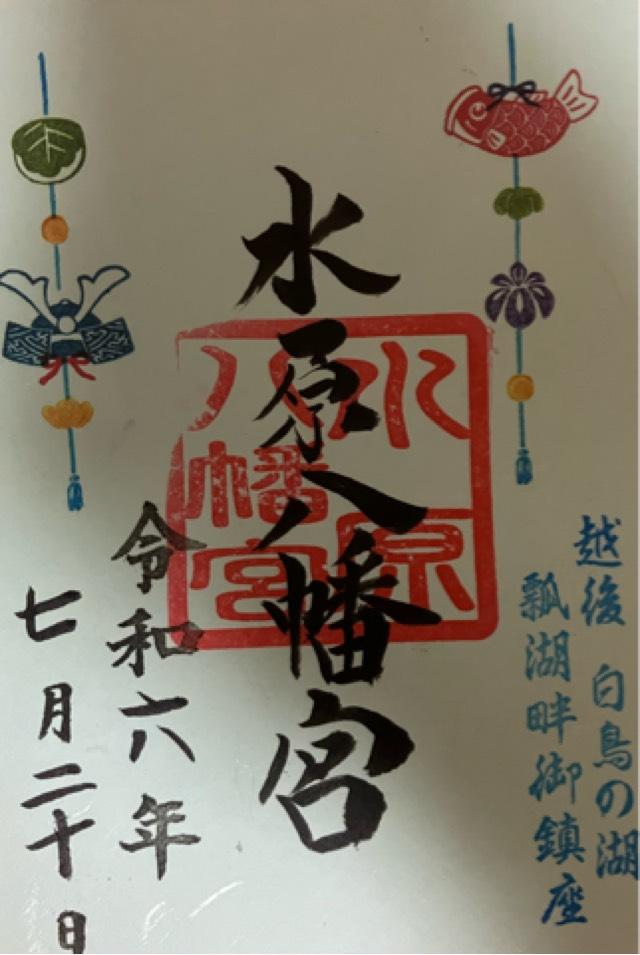 越後 白鳥の湖
瓢湖畔御鎮座
水原八幡宮
水原
八幡宮
令和六年
七月二十日